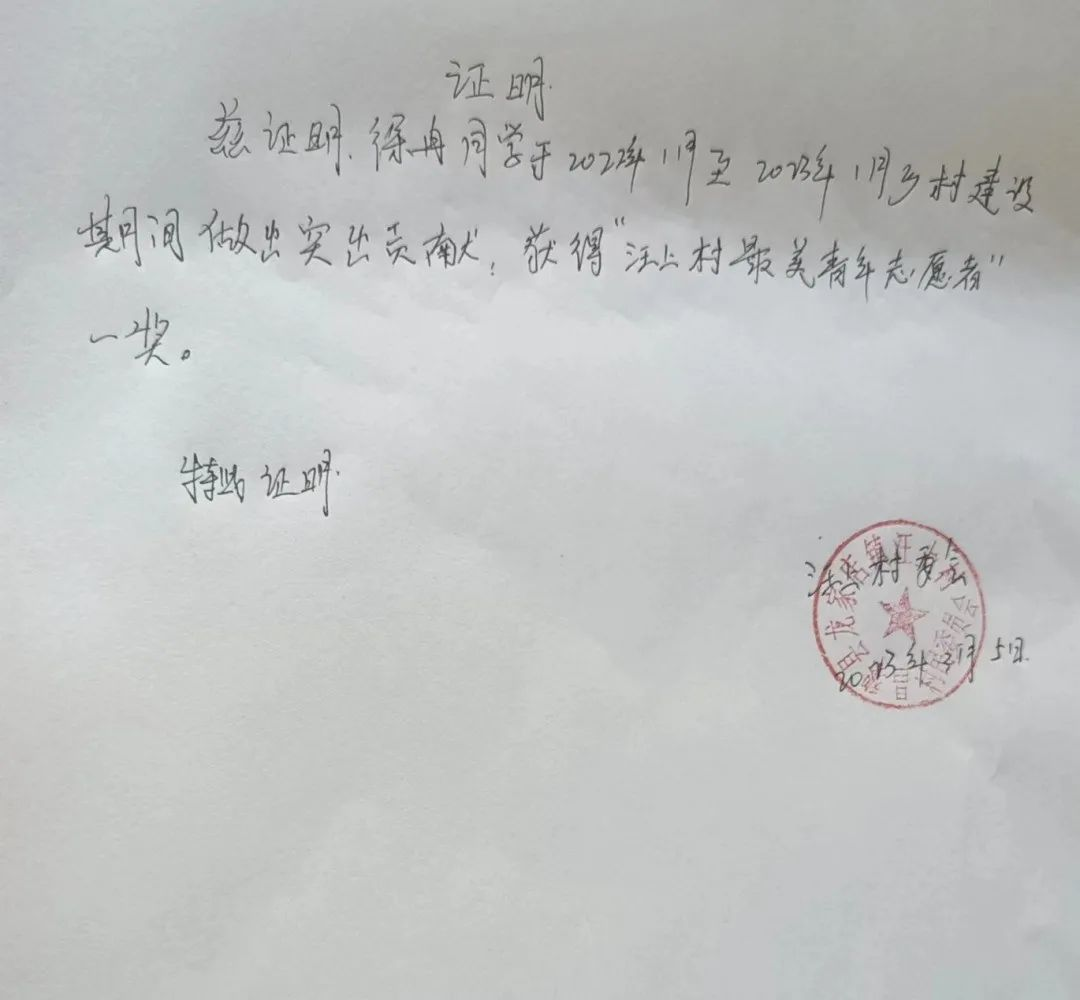 证明
兹证明，徐冉同学于2022年1月至2023年1月乡村建设
期间做出突出贡献，获得“汪上村最美青年志愿者”
一奖。
特此证明
村委会
2023年 月5日